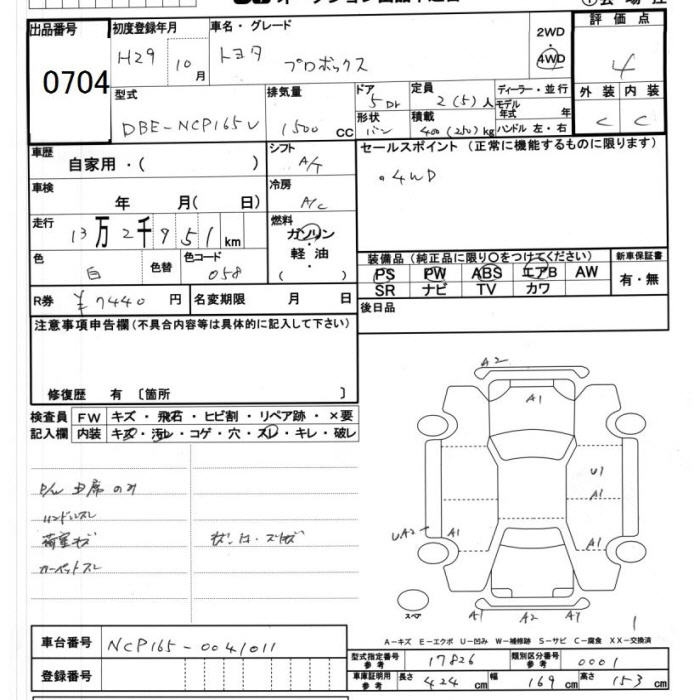 出品番号
0704
初度登録年月
H29 10月
車名・グレード
トヨタ プロボックス
2WD
・
4WD
評価点
4
型式
DBE-NCP165V
排気量
1500 CC
ドア
5Dr
形状
バン
定員
2(5)人
積載
400(250)kg
ディーラー・並行
モデル年式 年
ハンドル 左・右
外装 内装
C C
車歴
自家用・( )
シフト
A/T
セールスポイント (正常に機能するものに限ります)
・4WD
車検
年 月( 日)
冷房
A/C
走行
13万2千951km
燃料
ガソリン
軽油
( )
色
白
色替
色コード
058
装備品 (純正品に限り〇をつけてください)
PS PW ABS エアB AW
SR ナビ TV カワ
新車保証書
有・無
R券
¥7440円
名変期限 月 日
後日品
注意事項申告欄(不具合内容等は具体的に記入して下さい)
修復歴 有 〔箇所 〕
検査員
記入欄
FW キズ・飛石・ヒビ割・リペア跡・×要
内装 キズ・汚レ・コゲ・穴・スレ・キレ・破レ
P/W D席のみ
ハンドルスレ
荷室キズ
カーペットスレ
A2
A1
U1
A1
UA2
A1
A1
スペア
A1 A2 A1
1
A-キズ E-エクボ U-凹み W-補修跡 S-サビ C-腐食 XX-交換済
車台番号
NCP165-0041011
登録番号
型式指定番号
参考
17826
類別区分番号
参考
0001
車庫証明用
参考
長さ 424 cm
幅 169 cm
高さ 153 cm